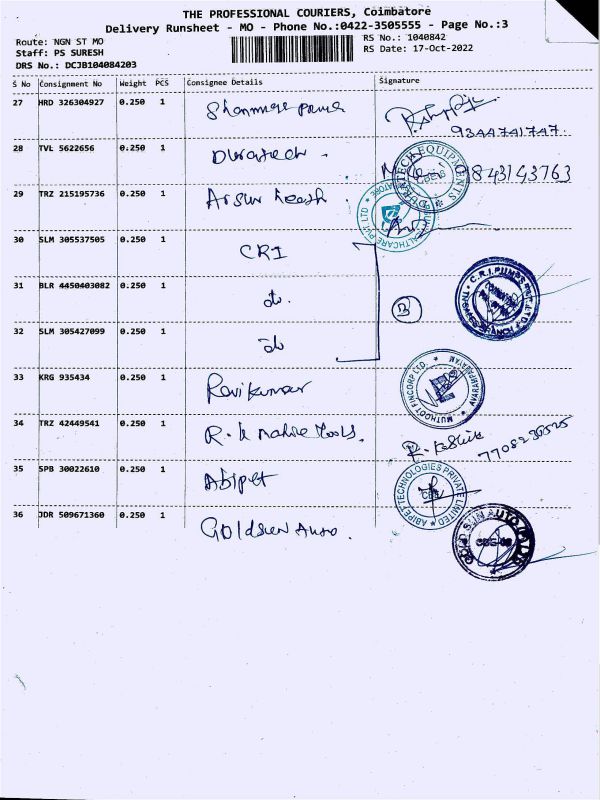 THE PROFESSIONAL COURIERS, Coimbatore
Delivery Runsheet - MO - Phone No.:0422-3505555 - Page No.:3
Route: NGN ST MO
Staff: PS SURESH
DRS No.: DCJB104084203
RS No.: 1040842
RS Date: 17-Oct-2022
S No Consignment No Weight PCS Consignee Details Signature
27 HRD 326304927 0.250 1
9344741747
28 TVL 5622656 0.250 1 Duratech
9843143763
29 TRZ 215195736 0.250 1
30 SLM 305537505 0.250 1 CRI
31 BLR 4450403082 0.250 1 do.
B
32 SLM 305427099 0.250 1 do
33 KRG 935434 0.250 1 Ravikumar
MUTHOOT FINCORP LTD. AVARAMPALAYAM
34 TRZ 42449541 0.250 1 R.K
35 SPB 30022610 0.250 1 Abipet
ABIPET TECHNOLOGIES PRIVATE LIMITED
CBE
36 JDR 509671360 0.250 1 Goldsun Auto.